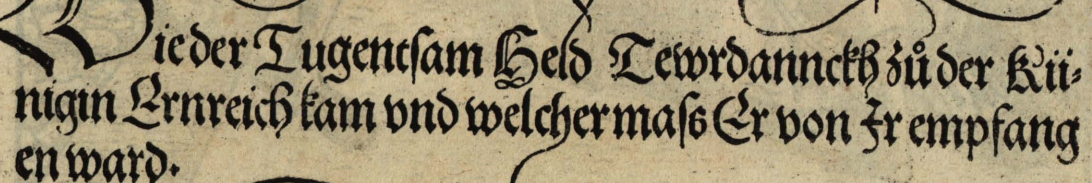 Wie der Tugentsam Held Tewrdannckh zů der Kü⸗
nigin Ernreich kam vnd welcher maſs Er von Ir empfang
en ward.